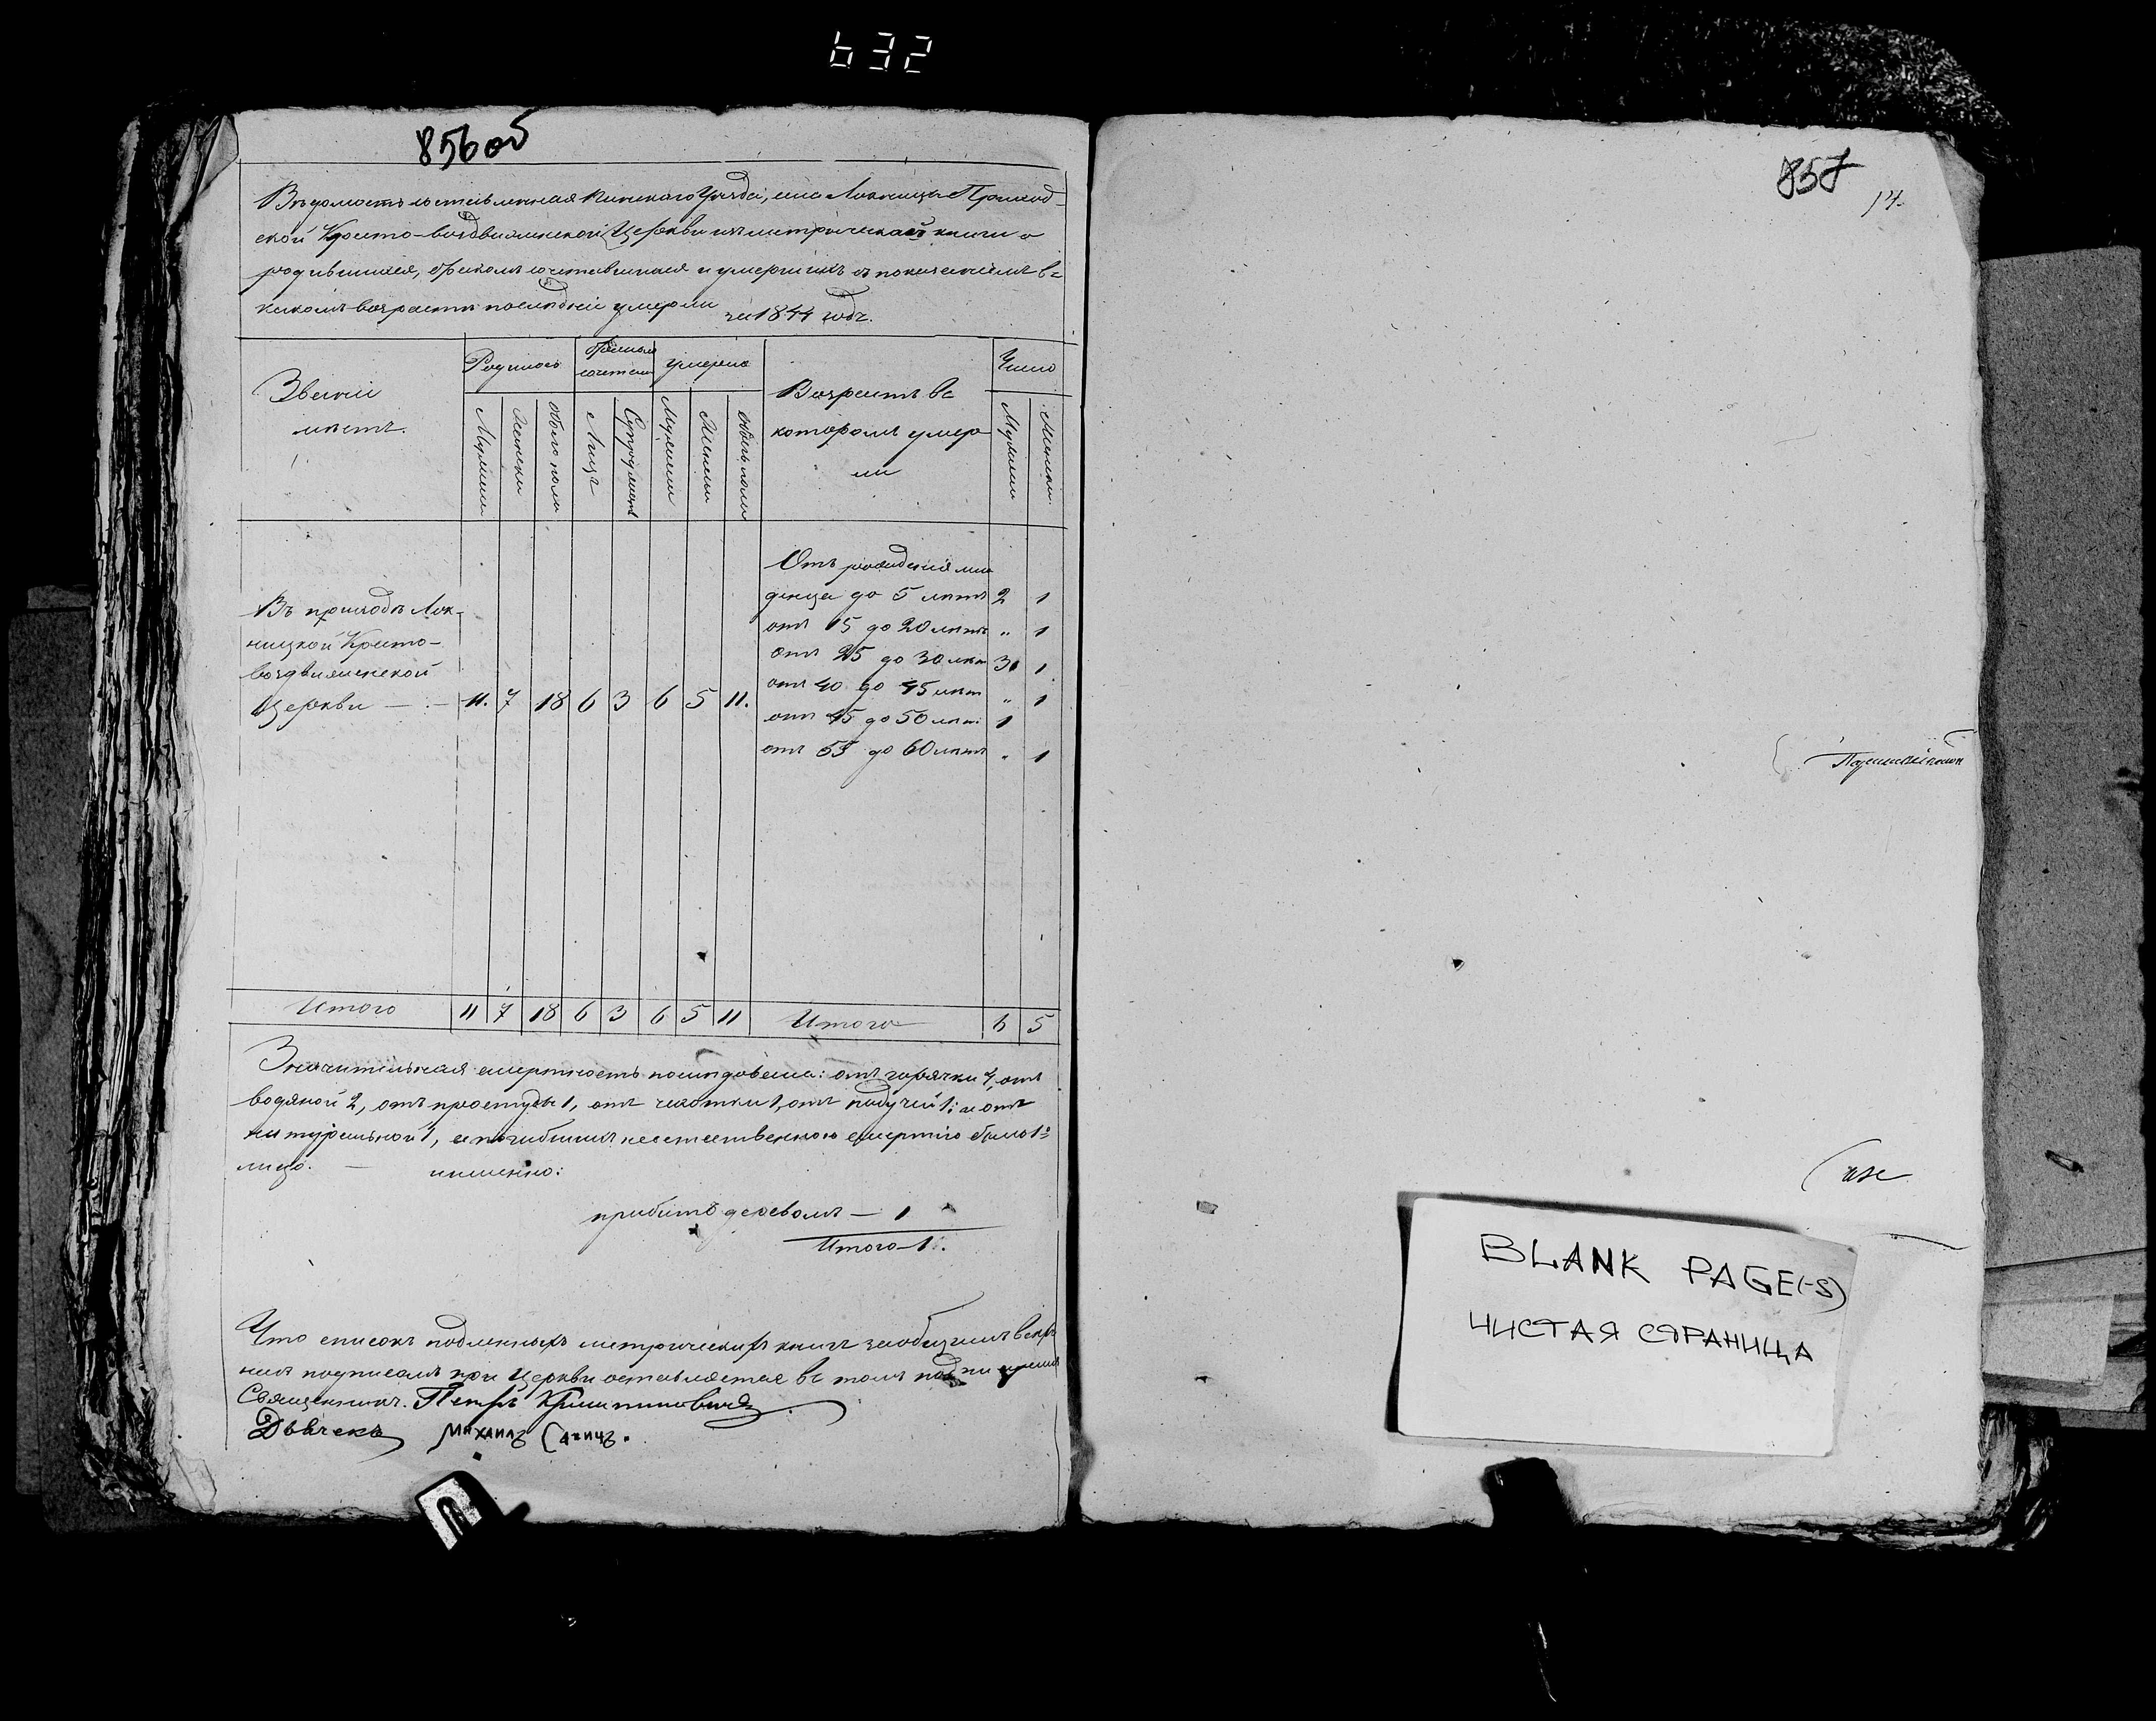 632
856об
Вѣдомость составленная Пинскаго Уѣзда, села Локницы Приход-
ской Кресто-воздвиженской Церкви изъ метрической книги о
родившихся, бракомъ сочетавшихся и умершихъ съ показаніемъ въ
какомъ возрастѣ послѣдніе умерли за 1844 годъ.
Званіи
мѣстъ.
Родилось
бракомъ
сочетано
умерло
Возрастъ въ
которомъ умер
ли
Число
Мужески
Женски
Обоего пола
Лицъ
Супружествъ
Мужески
Женски
обоего пола
Мужески
Женски
Отъ рожденія мла
денца до 5 лѣтъ 2 1
отъ 15 до 20 лѣтъ „ 1
отъ 25 до 30 лѣтъ 3 1
отъ 40 до 45 лѣтъ „ 1
отъ 45 до 50 лѣтъ 1
отъ 55 до 60 лѣтъ „ 1
Въ приходѣ Лок-
ницкой Кресто-
воздвиженской
Церкви — 11. 7 18 6 3 6 5 11.
Итого 11 7 18 6 3 6 5 11 Итого 6 5
Значительная смертность послѣдовала: отъ горячки 4, отъ
водяной 2, отъ простуды 1, отъ чахотки 1, отъ падучей 1: и отъ
натуральной 1, а погибшихъ неестественною смертію было 1
лицо. — именно:
прибито деревомъ — 1
Итого 1.
Что списокъ подленныхъ метрическихъ книгъ
подписалъ при Церкви оставляется въ томъ
Священникъ. Петръ
Дьячекъ Михаилъ Сачицъ.
857
14.
BLANK PAGE(-S)
ЧИСТАЯ СТРАНИЦА